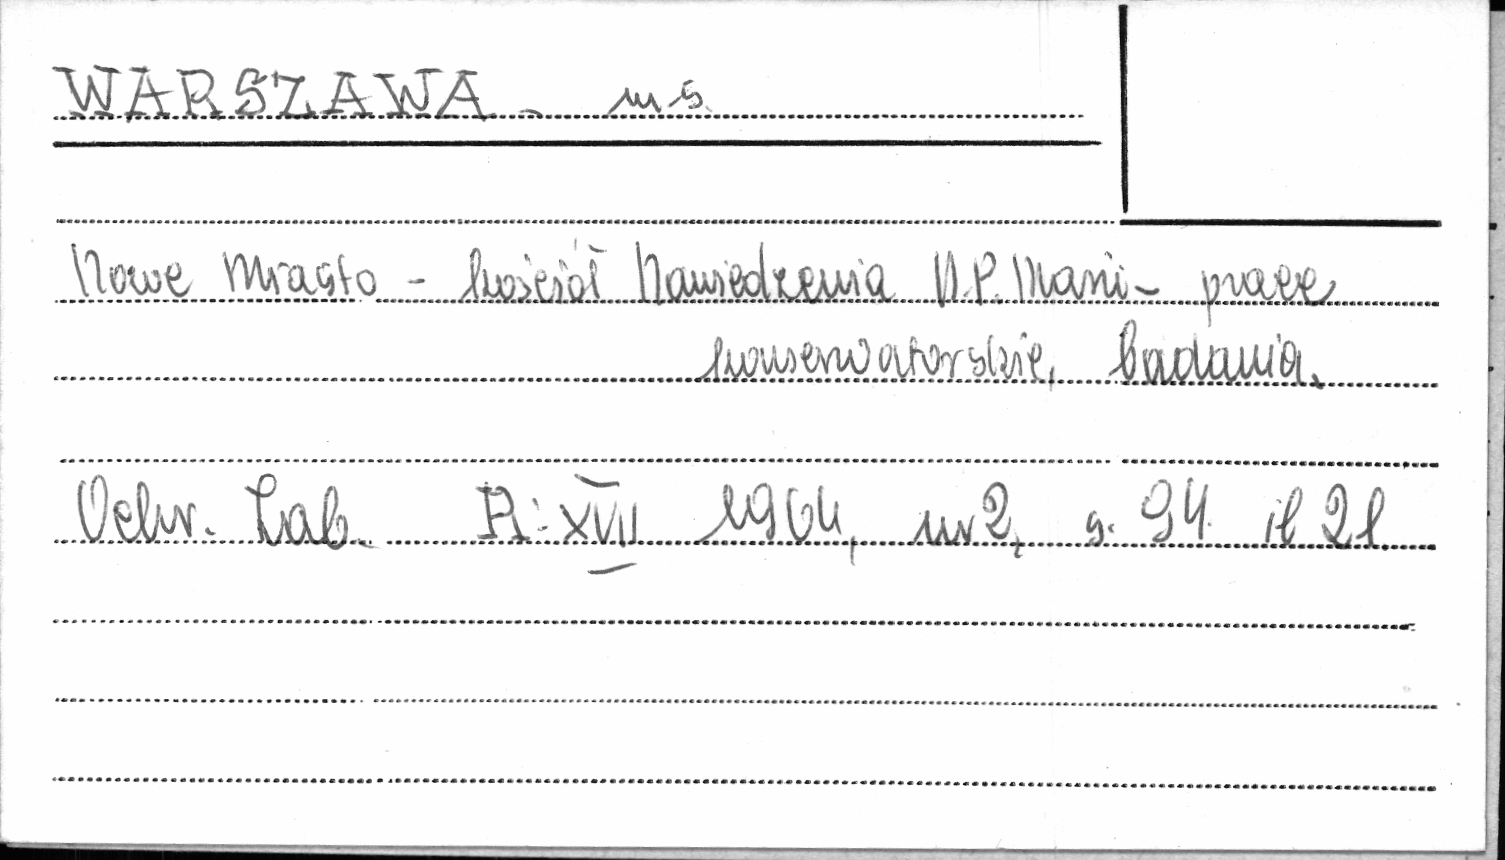 WARSZAWA - m s.
Nowe Miasto - kościół Nawiedzenia N.P. Marii - prace
konserwatorskie, badania.
Ochr. Zab. R: XVII 1964, nr 2, s. 94 il 21